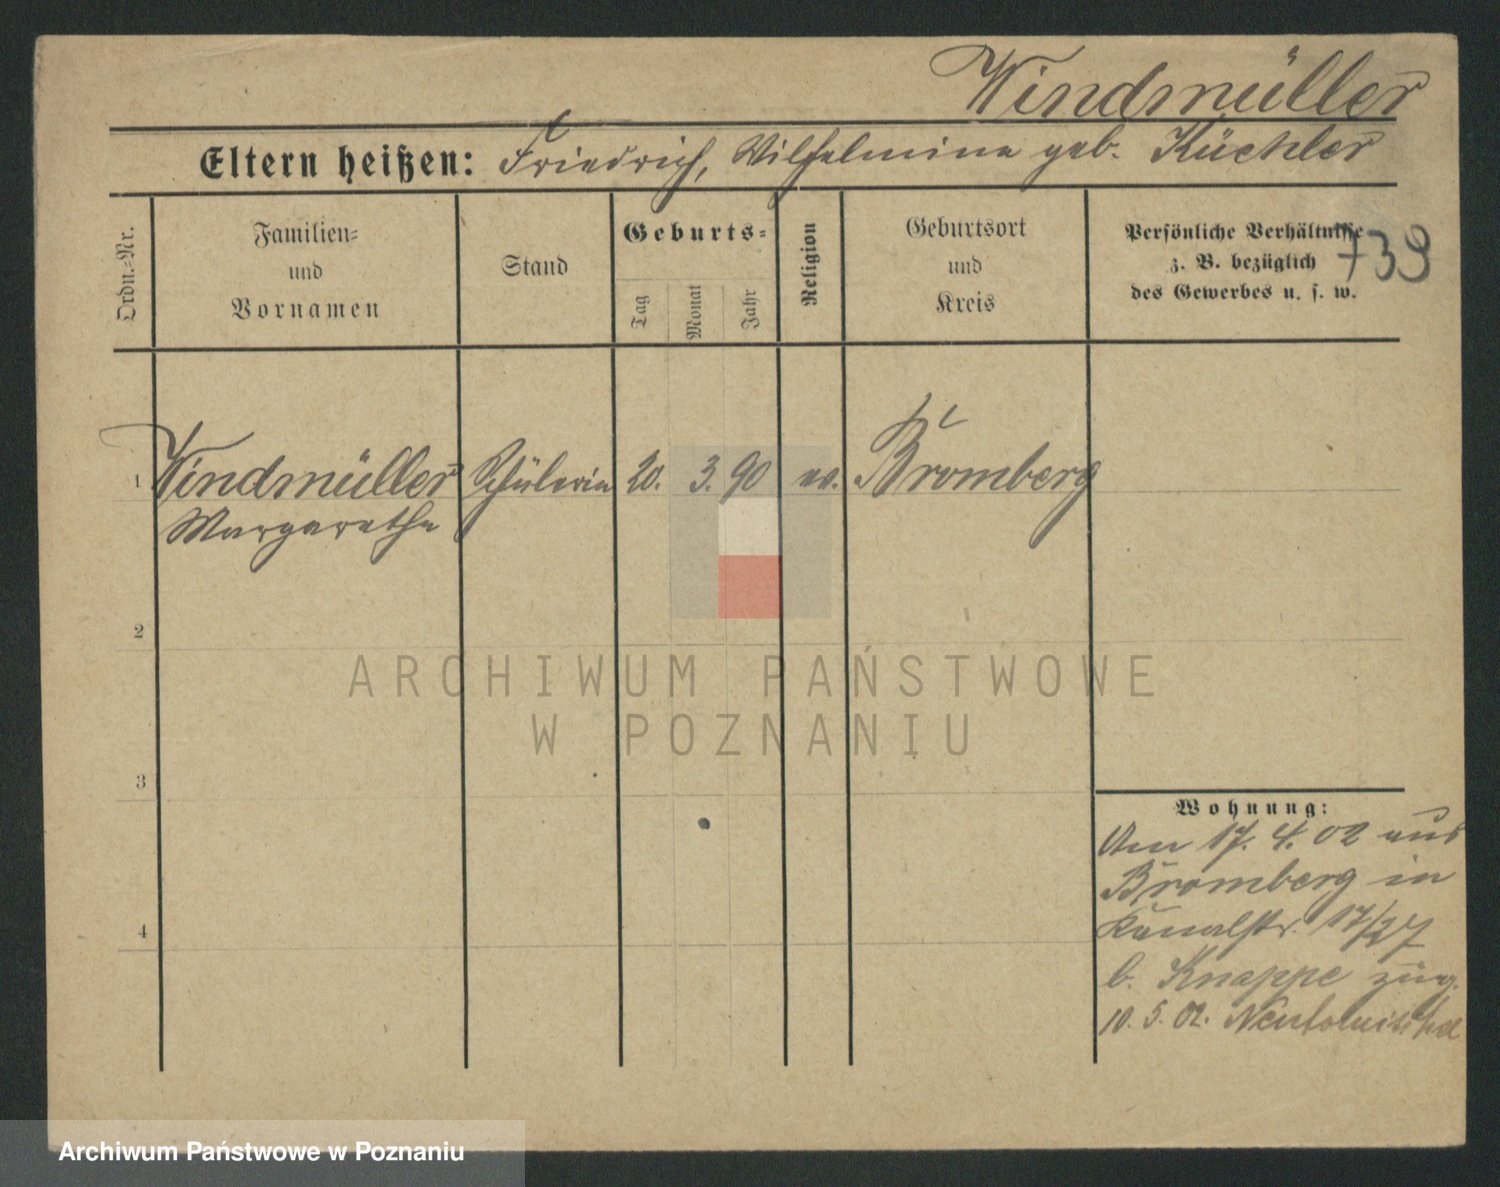 Windmüller
Eltern heißen: Friedrich, Wilhelmine geb. Küchler
Ordn.-Nr.
Familien-
und
Vornamen
Stand
Geburts-
Tag
Monat
Jahr
Religion
Geburtsort
und
Kreis
Persönliche Verhältnisse
z. B. bezüglich
des Gewerbes u. s. w.
739
1 Windmüller Schülerin 20. 3. 90 ev. Bromberg
Margarethe
2
3
4
ARCHIWUM PAŃSTWOWE
W POZNANIU
Wohnung:
Am 17. 4. 02 aus
Bromberg in
Kanalstr. 17/27
b. Knappe zug.
10. 5. 02.
Archiwum Państwowe w Poznaniu